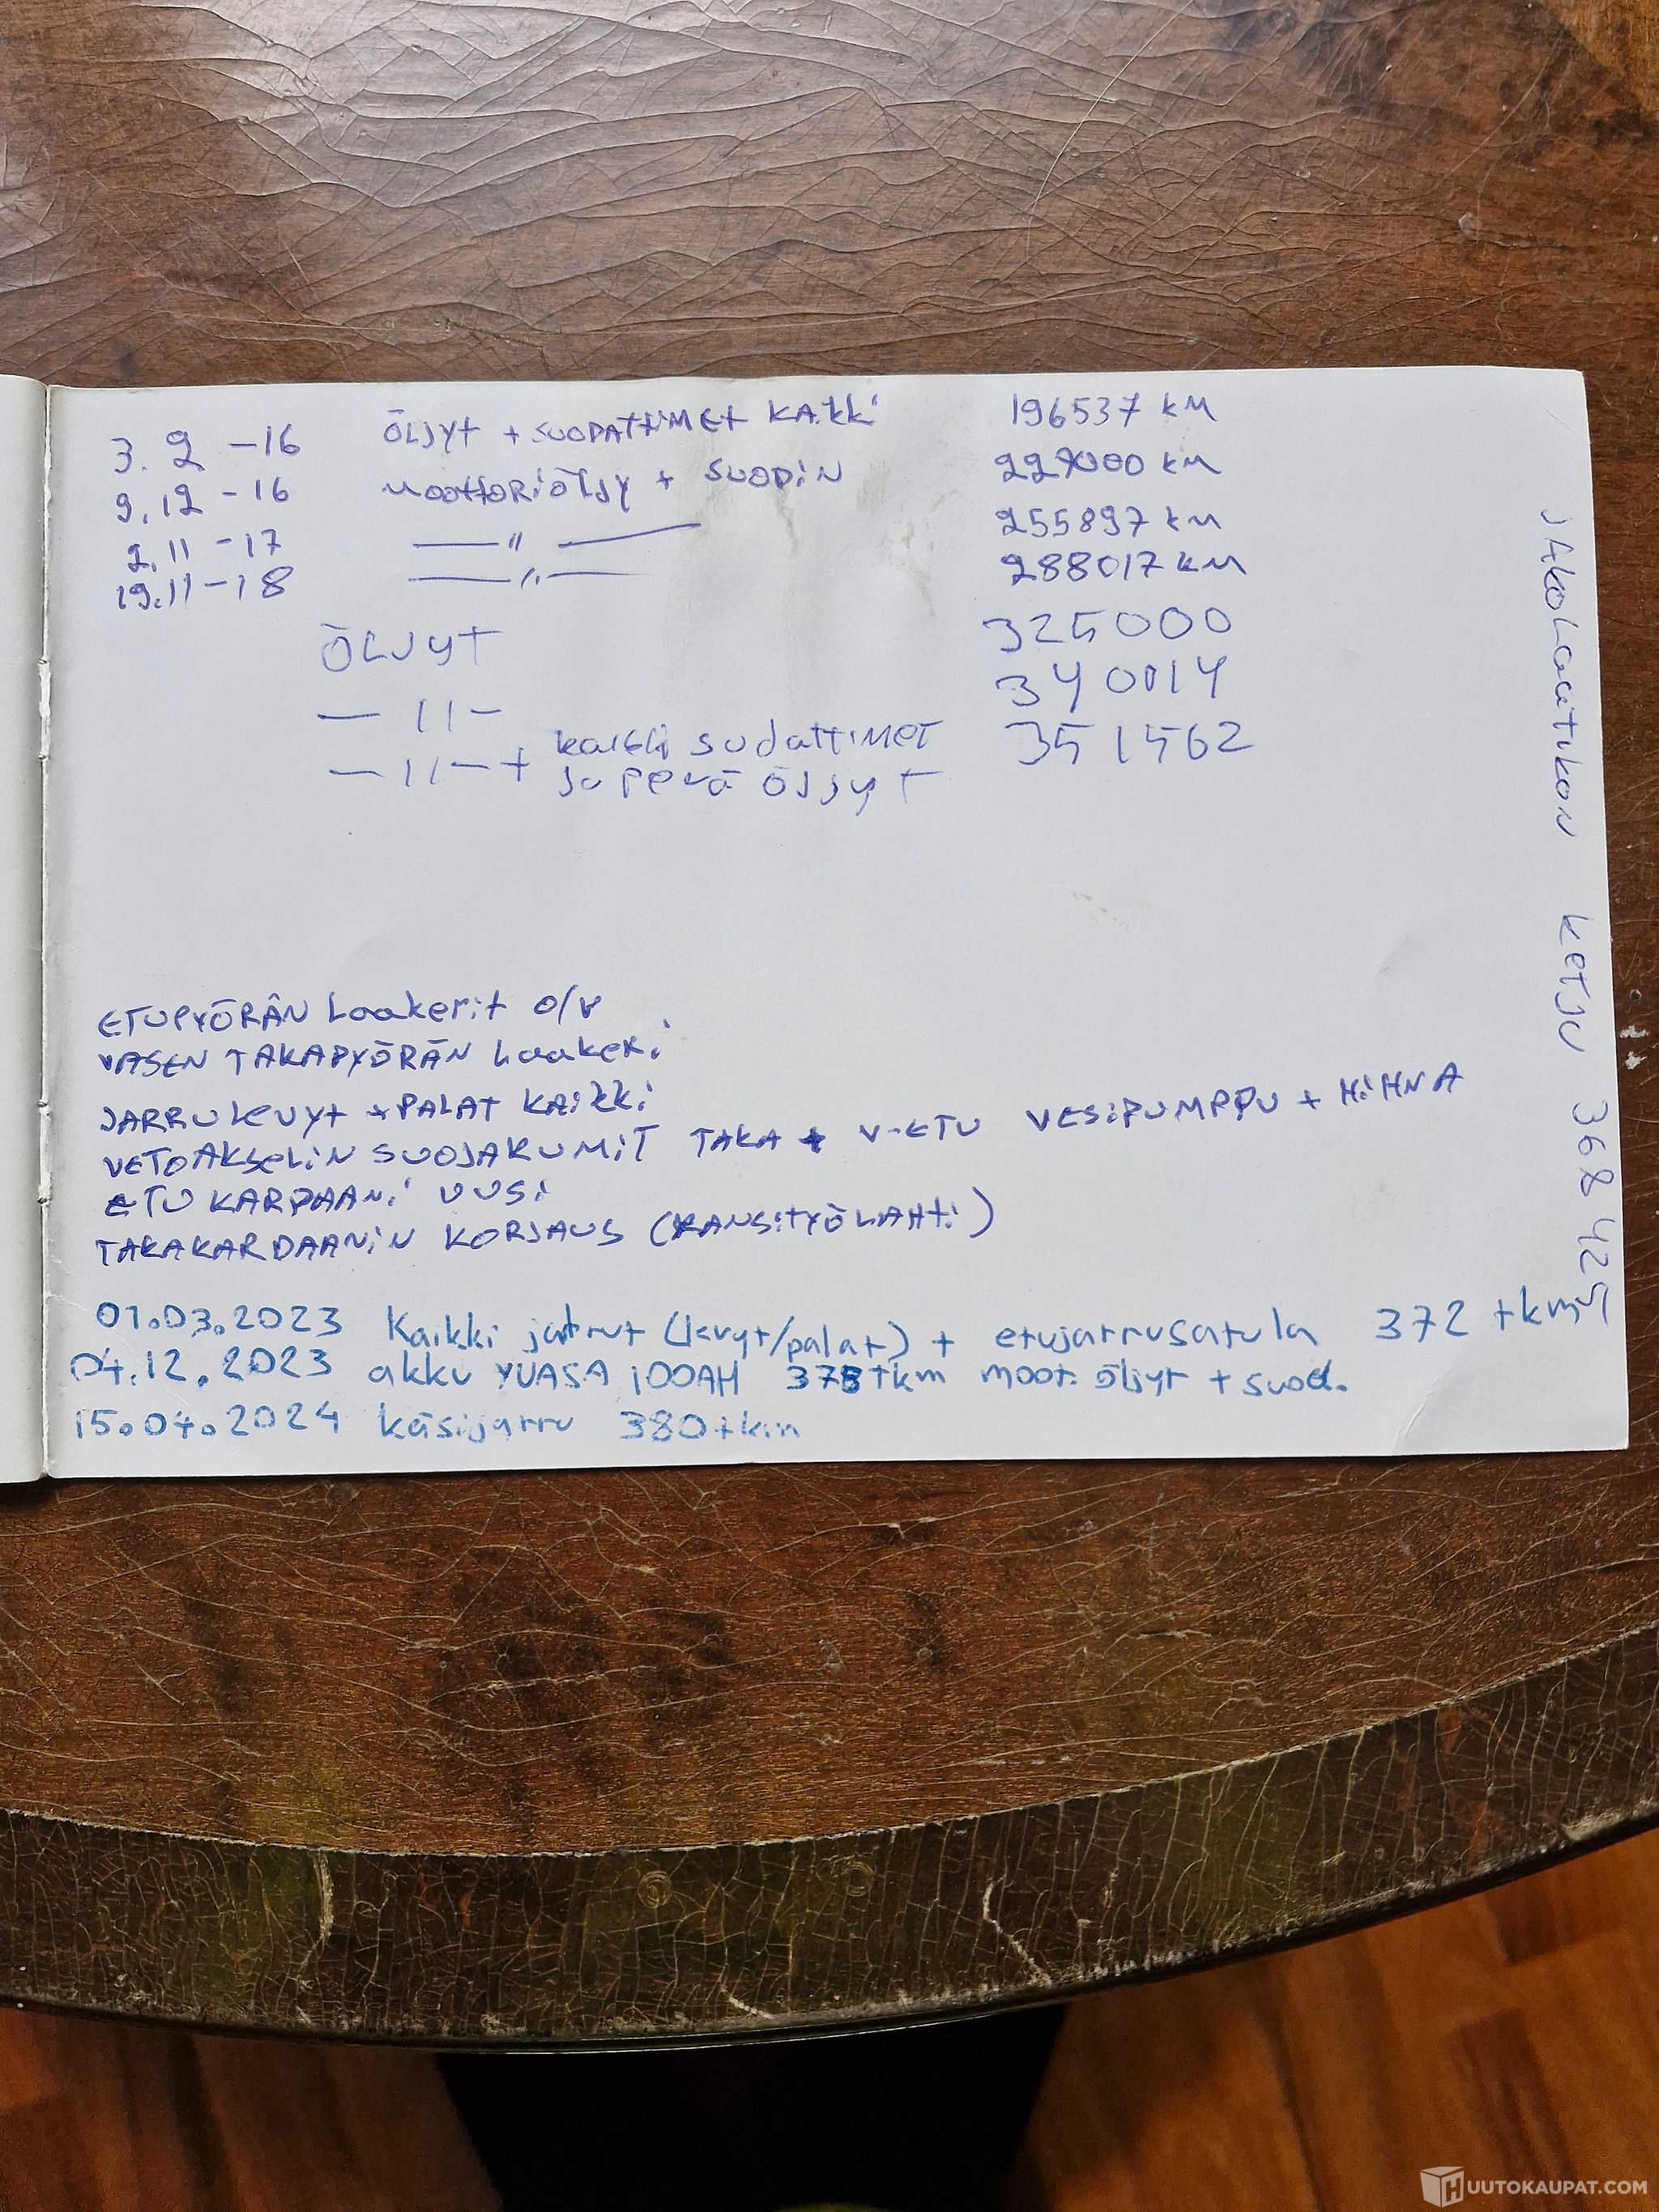 3. 2 -16 ÖLJYT + SUODATTIMET KAIKKI 196537 KM
9.12 -16 MOOTTORIÖLJY + SUODIN KM
2.11 -17 —"— 255897 KM
19.11-18 —"— 288017 KM
ÖLJYT 325000
— 11 — 340014
— 11 — + kaikki sudattimet 351562
ja perä öljyt
ETUPYÖRÄN Laakerit o/v
VASEN TAKAPYÖRÄN Laakeri
JARRULEVYT + PALAT KAIKKI
VETOAKSELIN SUOJAKUMIT TAKA + V-ETU VESIPUMPPU + HIHNA
ETU KARDAANI UUSI
TAKAKARDAANIN KORJAUS (KANSITYÖLAHTI)
01.03.2023 Kaikki jarrut (levyt/palat) + etujarrusatula 372 tkm
04.12.2023 akku YUASA 100AH tkm moot. öljyt + suod.
15.04.2024 käsijarru 380tkm
JAKOLAATIKON KETJU 368 425
UUTOKAUPAT.COM